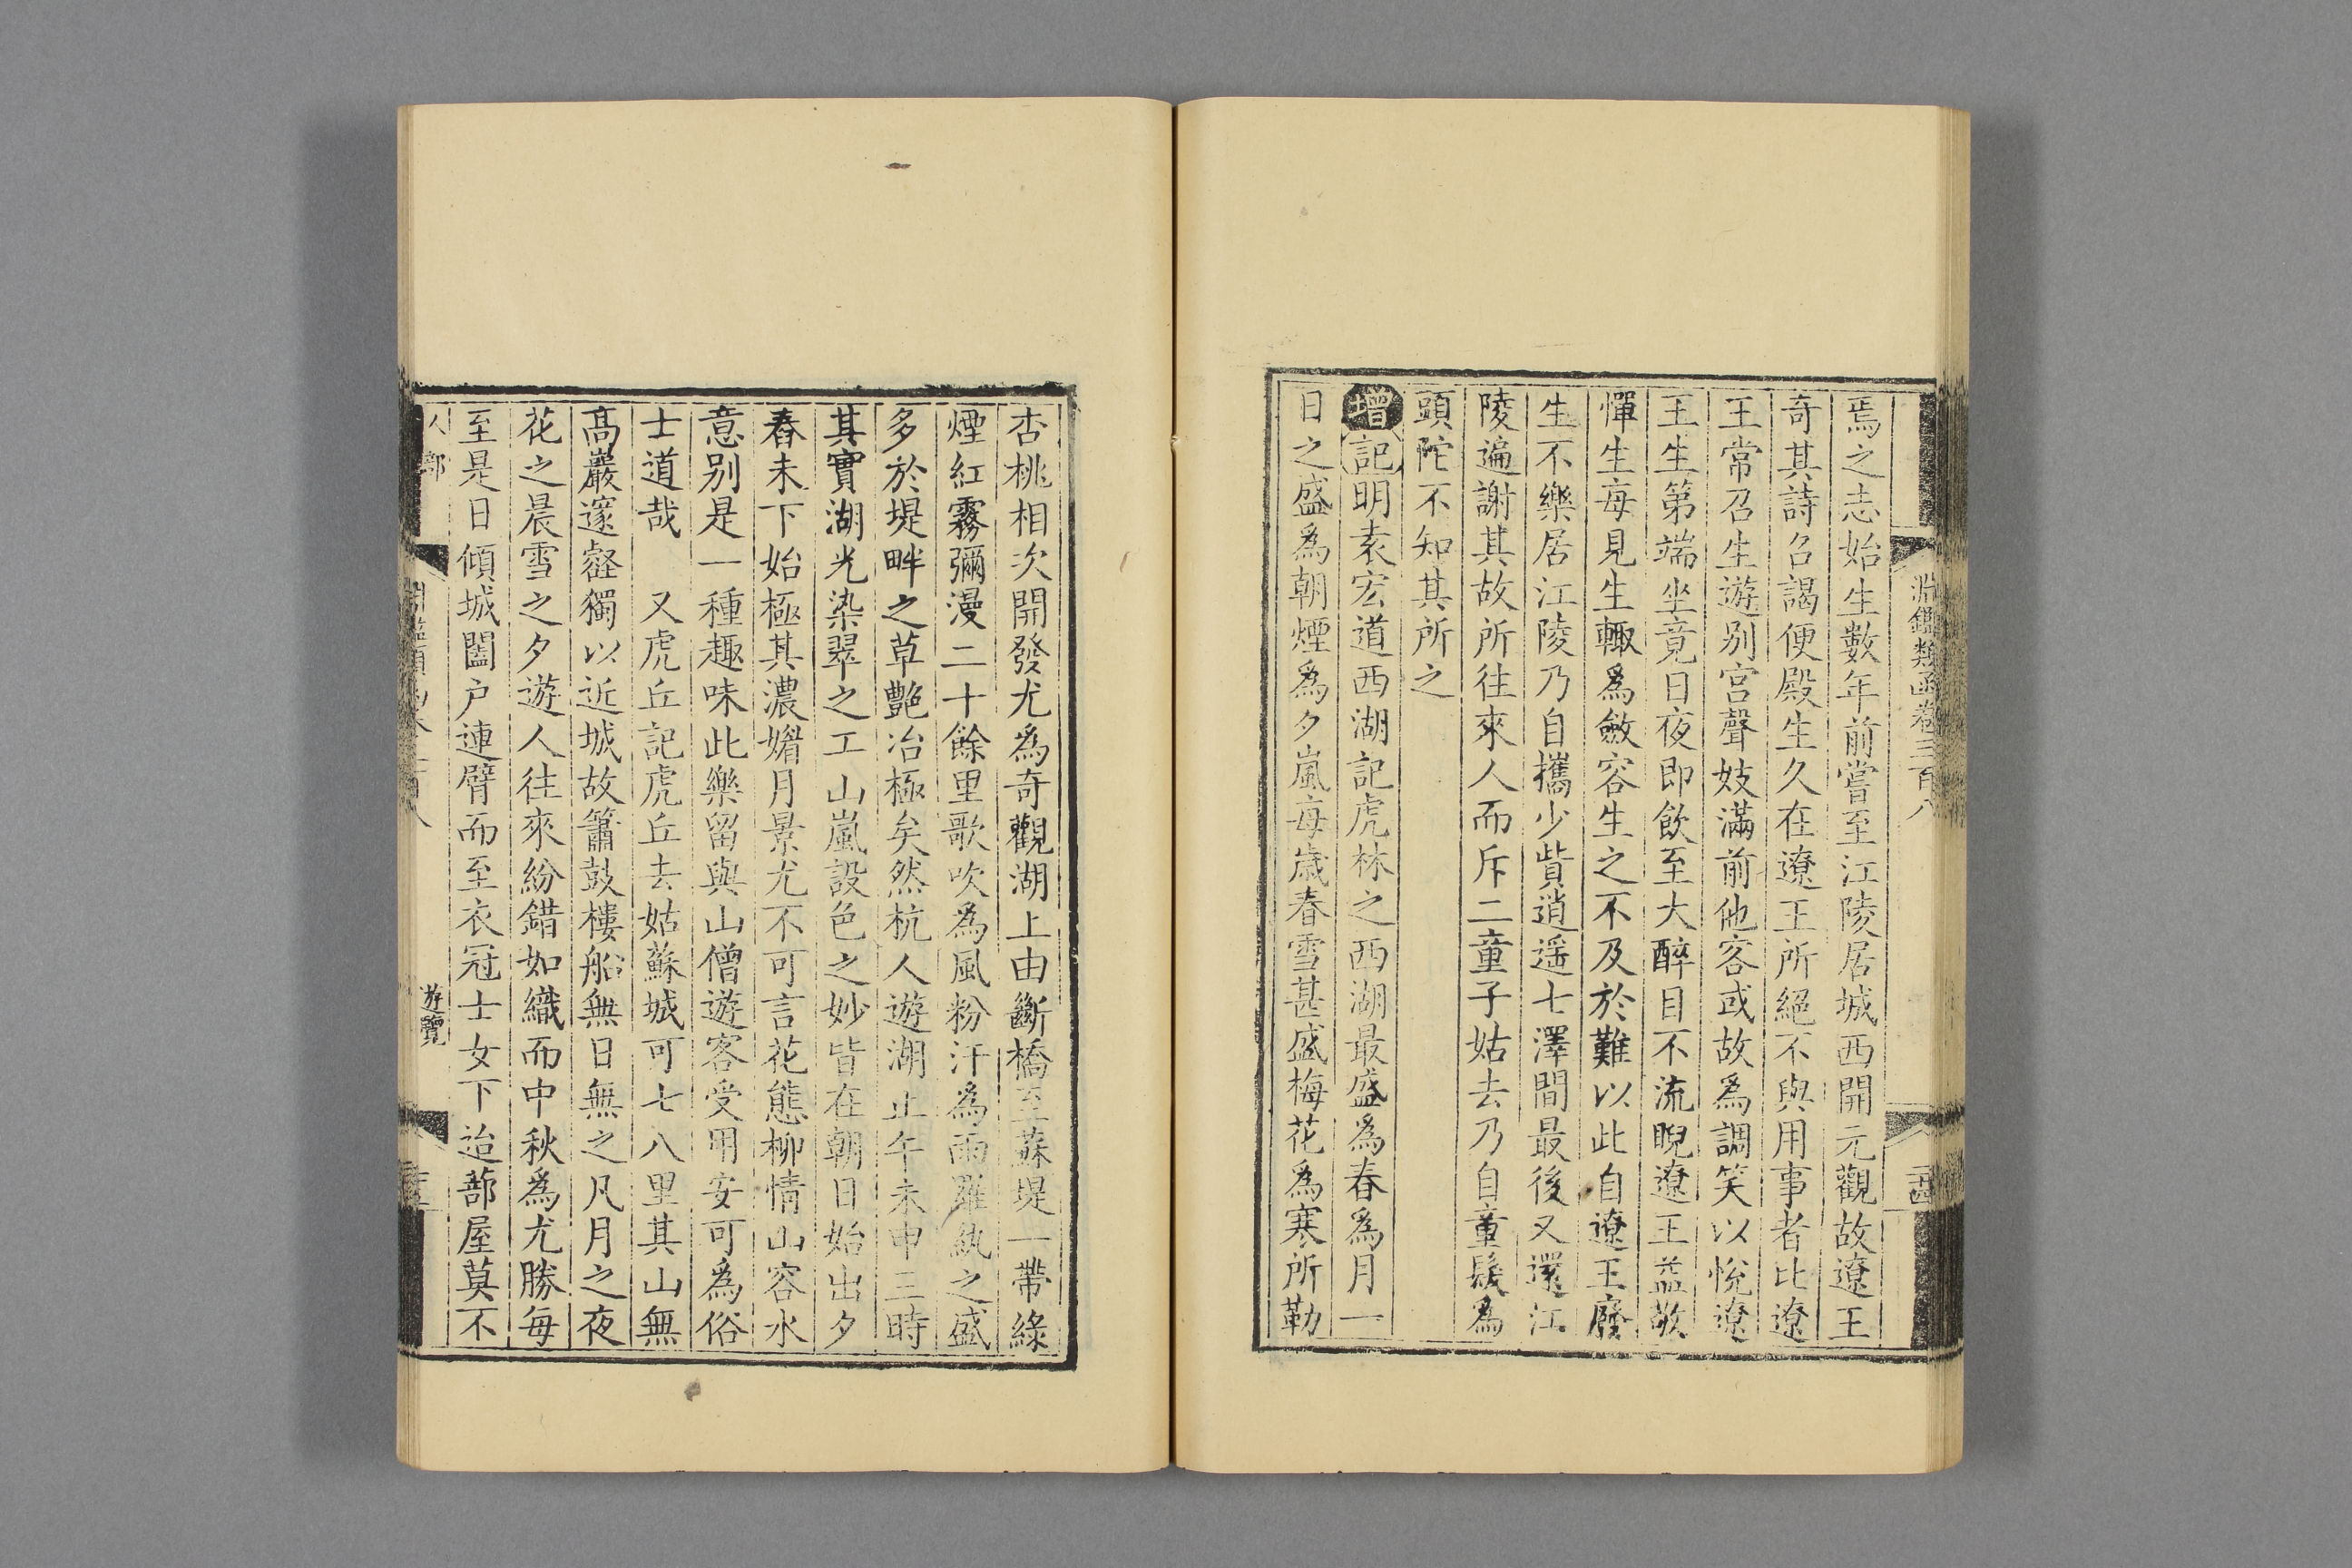 淵鑑類函卷三百八
焉之志始生數年前嘗至江陵居城西開元觀故遼王
奇其詩召謁便殿生久在遼王所絕不與用事者比遼
王常召生遊別宮聲妓滿前他客或故爲調笑以悅遼
王生第端坐竟日夜即飲至大醉目不流睨遼王益敬
憚生每見生輙爲斂容生之不及於難以此自遼王廢
生不樂居江陵乃自攜少貲逍遥七澤間最後又還江
陵遍謝其故所往來人而斥二童子姑去乃自童髮爲
頭陀不知其所之
增記明袁宏道西湖記虎林之西湖最盛爲春爲月一
日之盛爲朝煙爲夕嵐每歲春雪甚盛梅花爲寒所勒
杏桃相次開發尤爲奇觀湖上由斷橋至蘇堤一帶綠
煙紅霧彌漫二十餘里歌吹爲風粉汗爲雨羅紈之盛
多於堤畔之草艷冶極矣然杭人遊湖止午未申三時
其實湖光染翠之工山嵐設色之妙皆在朝日始出夕
舂未下始極其濃媚月景尤不可言花態柳情山容水
意別是一種趣味此樂留與山僧遊客受用安可爲俗
士道哉　又虎丘記虎丘去姑蘇城可七八里其山無
高巖邃壑獨以近城故簫鼓樓船無日無之凡月之夜
花之晨雪之夕遊人往來紛錯如織而中秋爲尤勝每
至是日傾城闔户連臂而至衣冠士女下迨蔀屋莫不
人部
遊覽